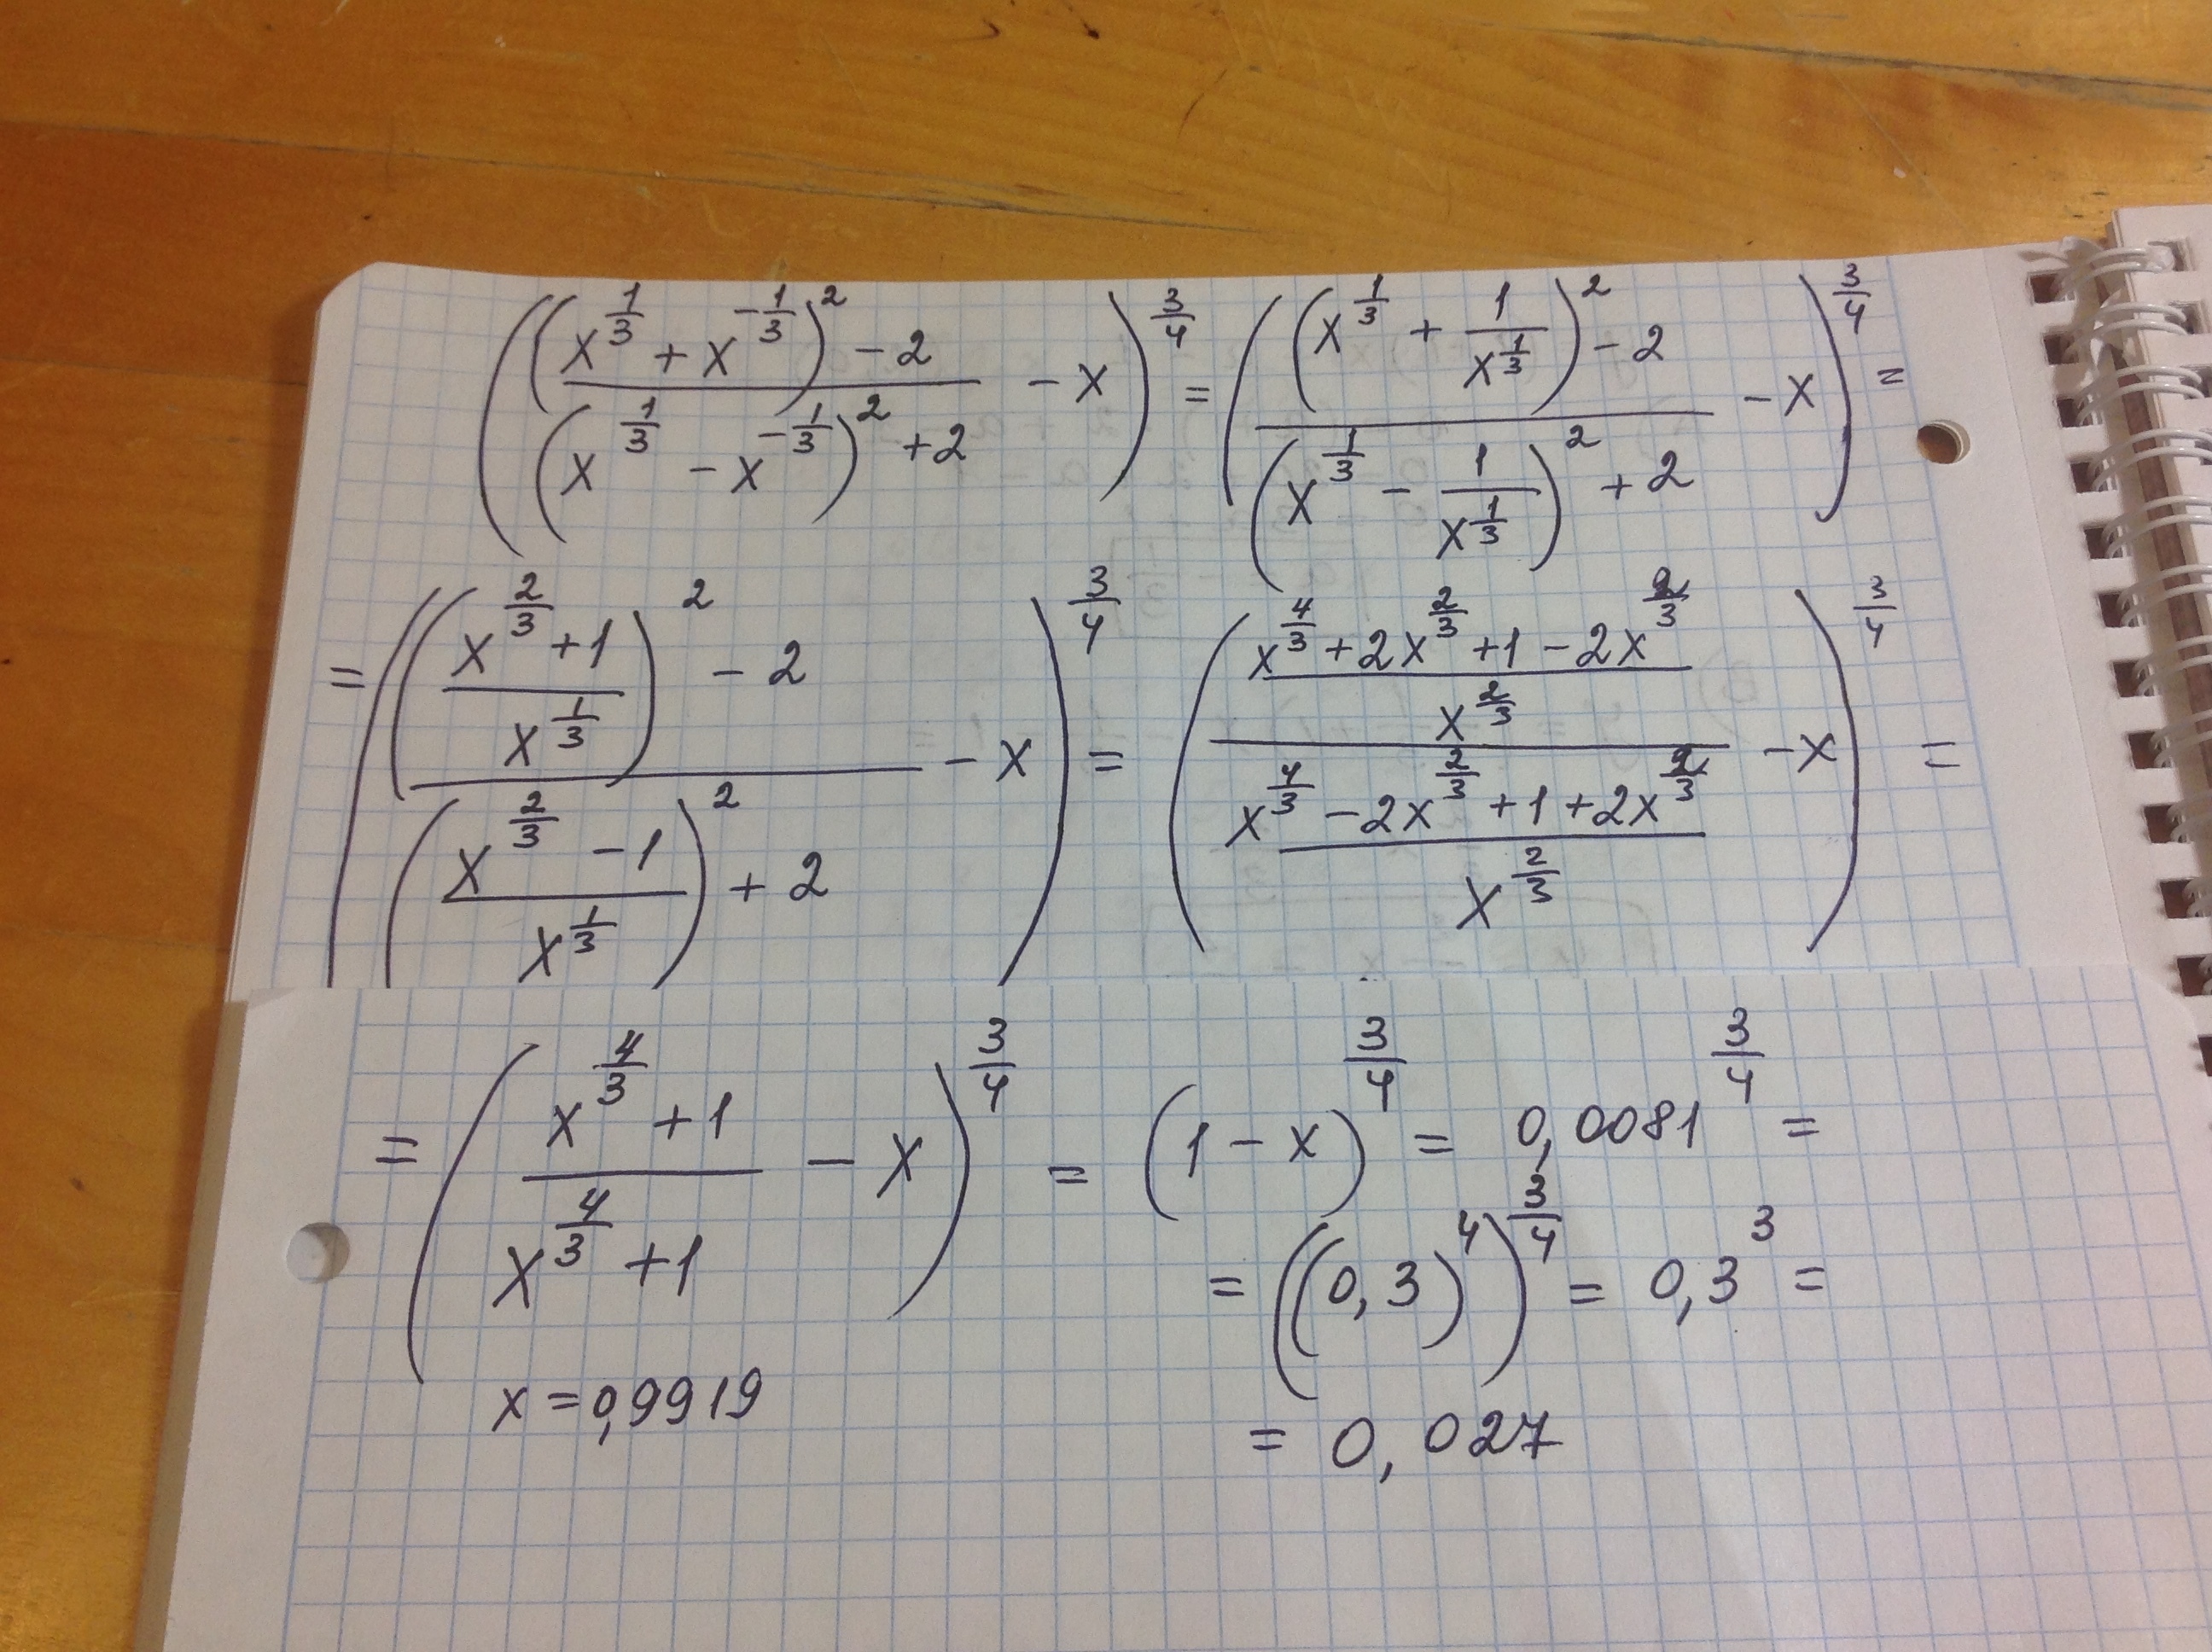 ((x^{1/3} + x^{-1/3})^2 - 2 / (x^{1/3} - x^{-1/3})^2 + 2 - x)^{3/4} = ((x^{1/3} + 1/x^{1/3})^2 - 2 / (x^{1/3} - 1/x^{1/3})^2 + 2 - x)^{3/4} =
= (((x^{2/3} + 1)/x^{1/3})^2 - 2 / ((x^{2/3} - 1)/x^{1/3})^2 + 2 - x)^{3/4} = ((x^{4/3} + 2x^{2/3} + 1 - 2x^{2/3})/x^{2/3} / (x^{4/3} - 2x^{2/3} + 1 + 2x^{2/3})/x^{2/3} - x)^{3/4} =
= ((x^{4/3} + 1)/(x^{4/3} + 1) - x)^{3/4} = (1 - x)^{3/4} = 0,0081^{3/4} =
= ((0,3)^4)^{3/4} = 0,3^3 =
x = 0,9919
= 0,027